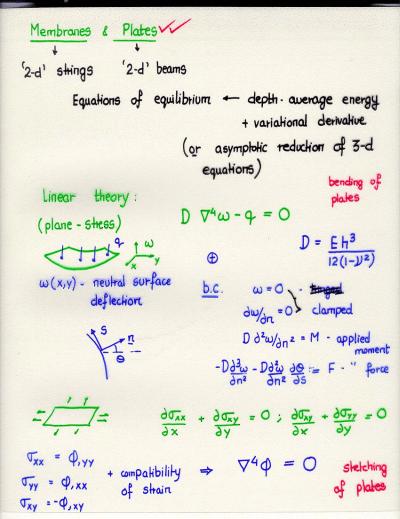 Membranes & Plates ✓✓
'2-d' strings '2-d' beams
Equations of equilibrium ← depth-average energy
+ variational derivative
(or asymptotic reduction of 3-d
equations)
bending of
plates
Linear theory:
(plane-stess)
D ∇⁴ω - q = 0
q ω x y
⊕
D = Eh³ / 12(1-ν²)
ω(x,y) - neutral surface
deflection
b.c. ω = 0 -
∂ω/∂n = 0 clamped
D ∂²ω/∂n² = M - applied
moment
-D ∂³ω/∂n³ - D ∂²ω/∂n² ∂θ/∂s = F - " force
s n θ
∂σxx/∂x + ∂σxy/∂y = 0 ; ∂σxy/∂x + ∂σyy/∂y = 0
σxx = φ,yy
σyy = φ,xx
σxy = -φ,xy
+ compatibility
of strain
⇒ ∇⁴φ = 0
stretching
of plates